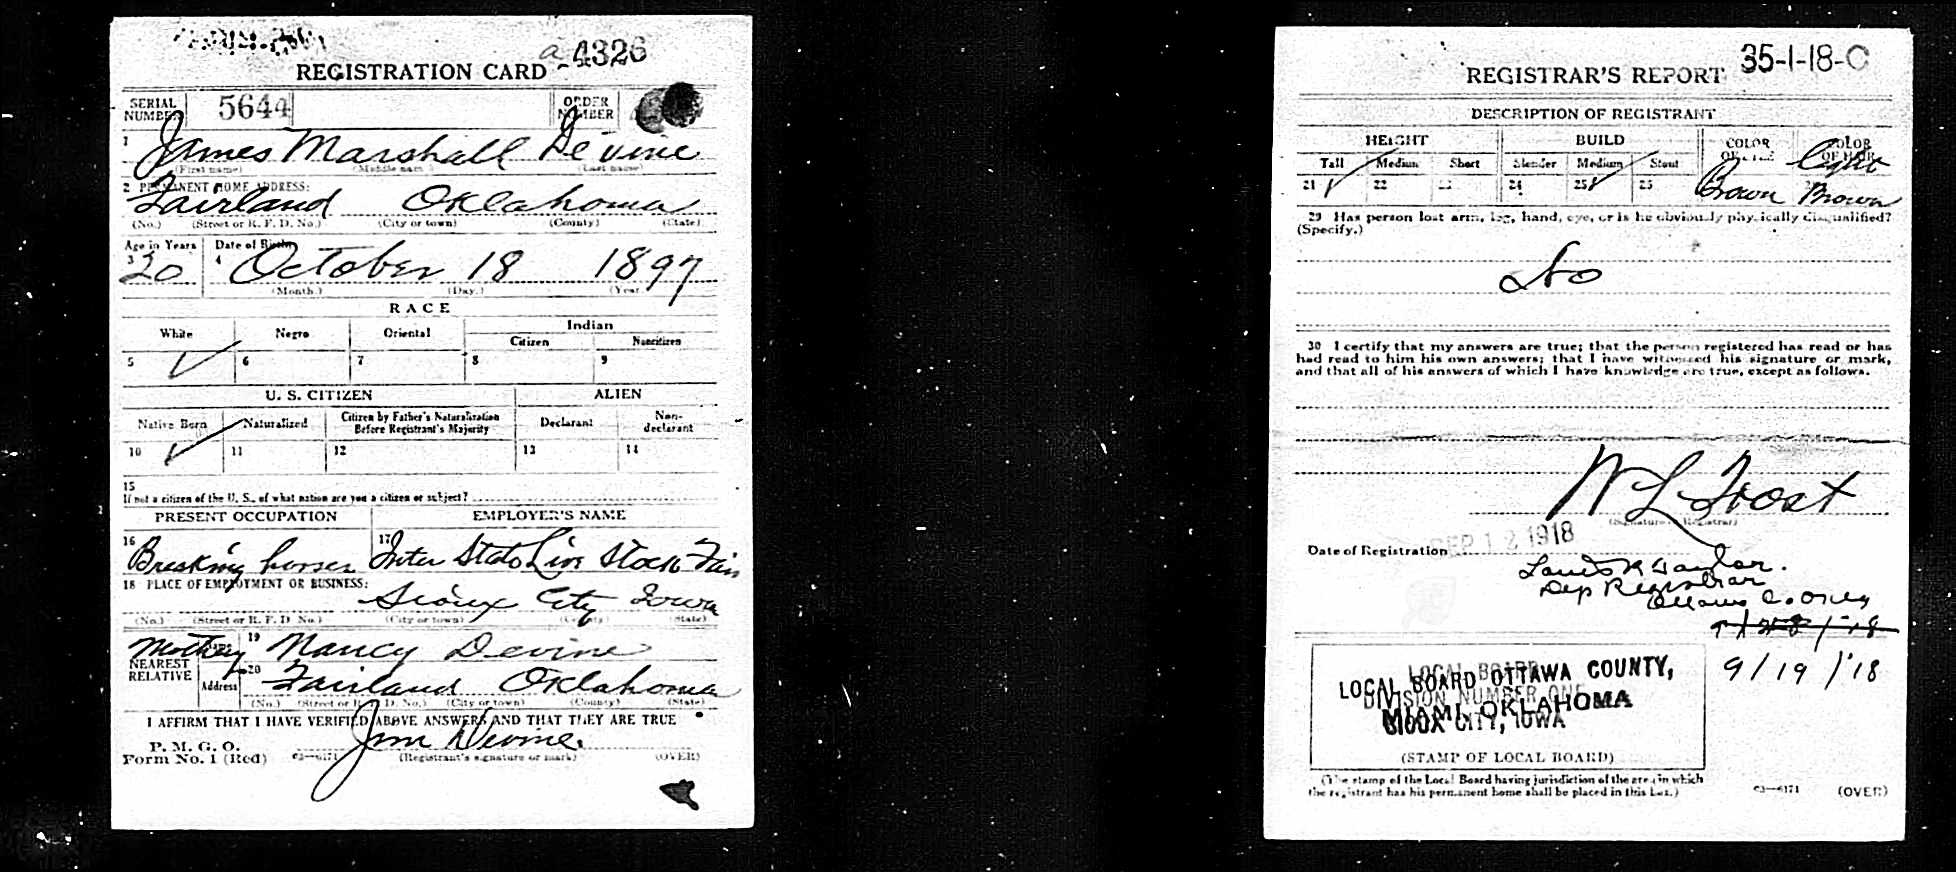 a 4326
REGISTRATION CARD
SERIAL NUMBER 5644 ORDER NUMBER
1 James Marshall Devine
(First name) (Middle name) (Last name)
2 PERMANENT HOME ADDRESS:
Fairland Oklahoma
(No.) (Street or R. F. D. No.) (City or town) (County) (State)
Age in Years Date of Birth
3 20 4 October 18 1897
(Month.) (Day.) (Year.)
RACE
White Negro Oriental Indian
Citizen Noncitizen
5 ✓ 6 7 8 9
U. S. CITIZEN ALIEN
Native Born Naturalized Citizen by Father's Naturalization Before Registrant's Majority Declarant Non-declarant
10 ✓ 11 12 13 14
15
If not a citizen of the U. S., of what nation are you a citizen or subject?
PRESENT OCCUPATION EMPLOYER'S NAME
16 Breaking horses 17 Inter State Live Stock Fair
18 PLACE OF EMPLOYMENT OR BUSINESS:
Sioux City Iowa
(No.) (Street or R. F. D. No.) (City or town) (County) (State)
Mother Name 19 Nancy Devine
NEAREST RELATIVE
Address 20 Fairland Oklahoma
(No.) (Street or R. F. D. No.) (City or town) (County) (State)
I AFFIRM THAT I HAVE VERIFIED ABOVE ANSWERS AND THAT THEY ARE TRUE
P. M. G. O.
Form No. 1 (Red) 03—6171 Jim Devine
(Registrant's signature or mark) (OVER)
35-1-18-C
REGISTRAR'S REPORT
DESCRIPTION OF REGISTRANT
HEIGHT BUILD COLOR OF EYES COLOR OF HAIR
Tall Medium Short Slender Medium Stout
21 ✓ 22 23 24 25 ✓ 26 Brown Light Brown
29 Has person lost arm, leg, hand, eye, or is he obviously physically disqualified?
(Specify.)
No
30 I certify that my answers are true; that the person registered has read or has
had read to him his own answers; that I have witnessed his signature or mark,
and that all of his answers of which I have knowledge are true, except as follows.
W L Frost
(Signature of Registrar)
Date of Registration SEP 12 1918
Dep Registrar
9/19/'18
LOCAL BOARD
LOCAL BOARD OTTAWA COUNTY,
DIVISION NUMBER ONE
MIAMI, OKLAHOMA
SIOUX CITY, IOWA
(STAMP OF LOCAL BOARD)
(The stamp of the Local Board having jurisdiction of the area in which
the registrant has his permanent home shall be placed in this box.)
03—6171 (OVER)